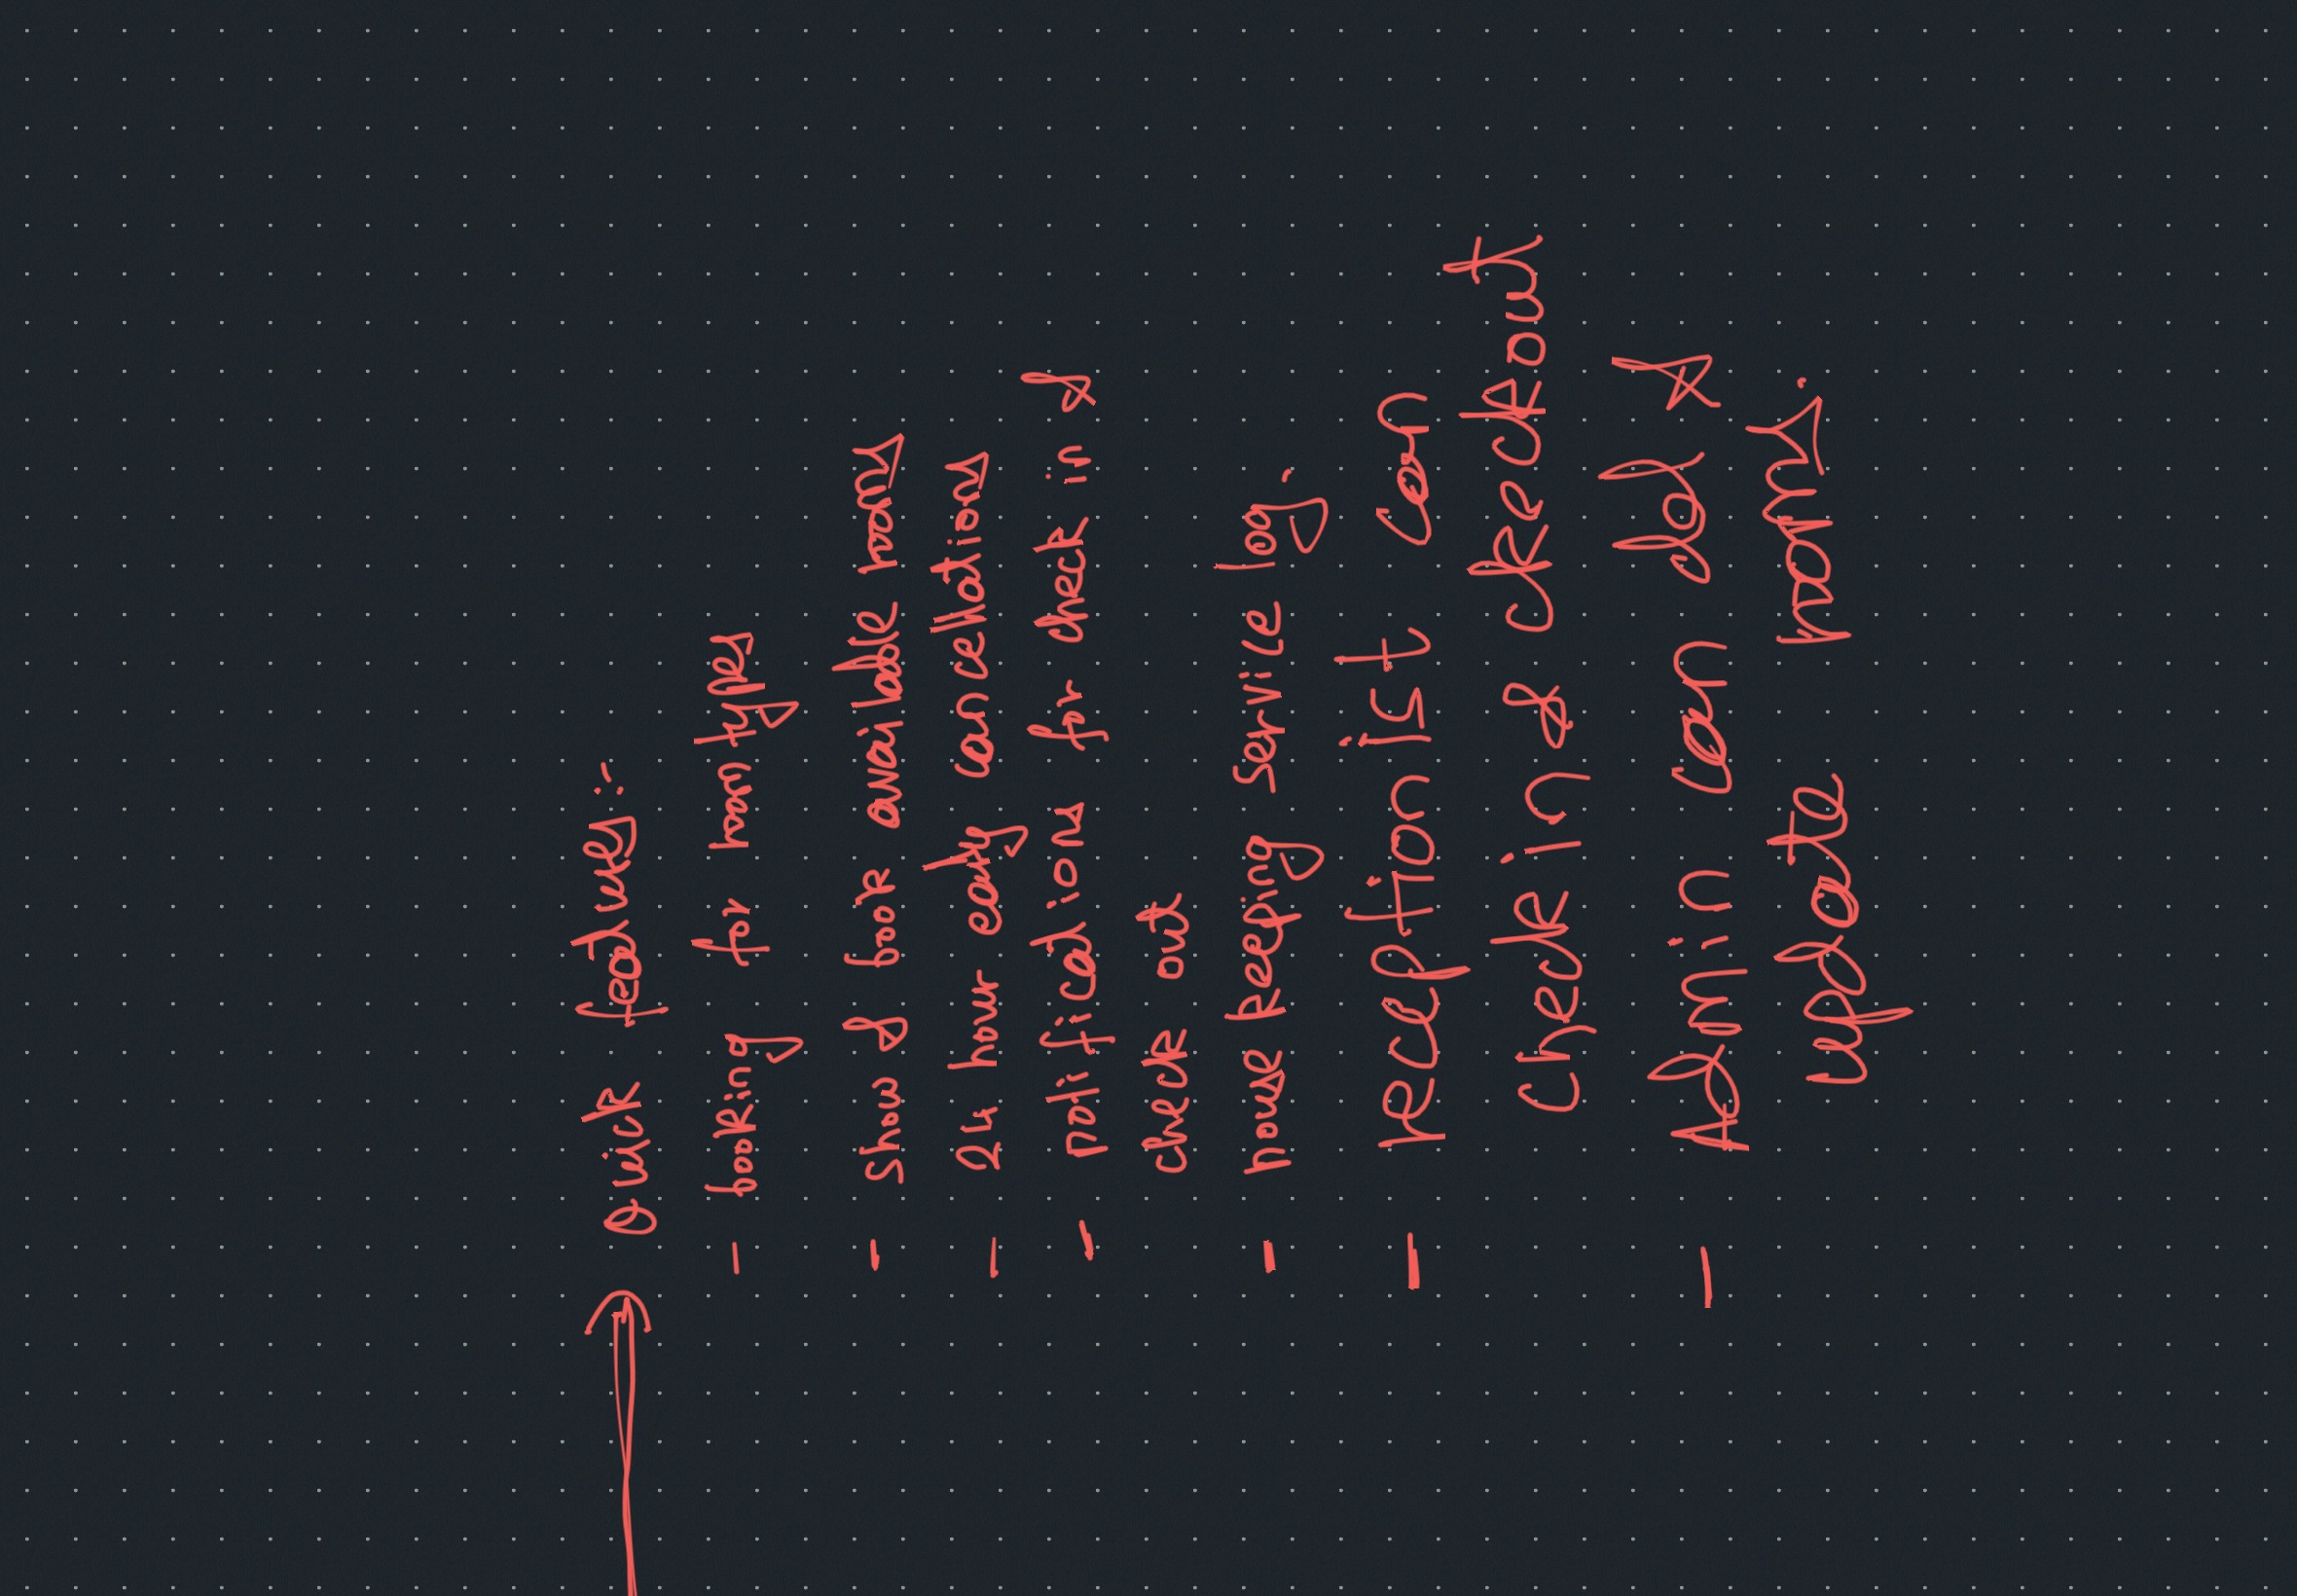 Quick features :-
- booking for room types
- show & book available rooms
- 24 hour early cancellations
- notifications for check in &
check out
- house keeping service log.
- receptionist can
check in & ckeckout
- Admin can del &
update rooms.